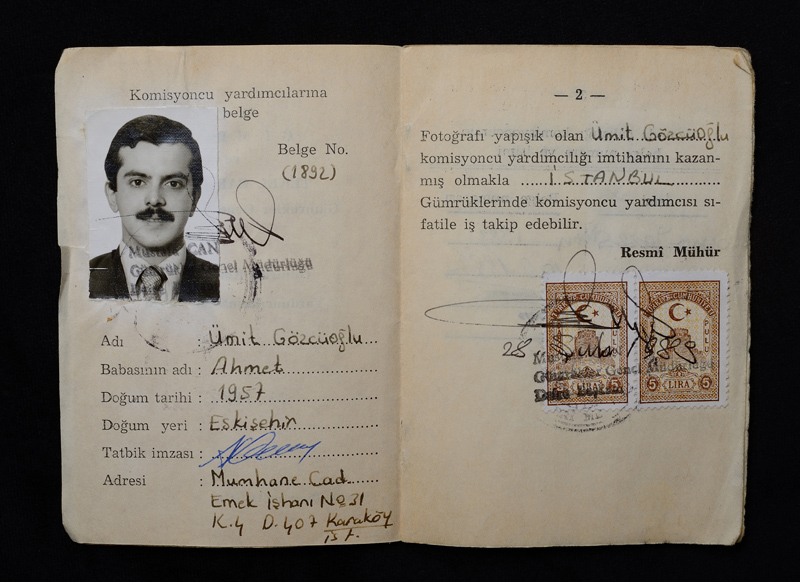 Komisyoncu yardımcılarına
belge
Belge No.
(1892)
Mustafa CAN
Gümrükler Genel Müdürlüğü
Adı : Ümit Gözcüoğlu
Babasının adı : Ahmet
Doğum tarihi : 1957
Doğum yeri : Eskişehir
Tatbik imzası :
Adresi : Mumhane Cad
Emek İşhanı No 31
K.4 D.407 Karaköy
İst.
— 2 —
Fotoğrafı yapışık olan Ümit Gözcüoğlu
komisyoncu yardımcılığı imtihanını kazan-
mış olmakla İSTANBUL
Gümrüklerinde komisyoncu yardımcısı sı-
fatile iş takip edebilir.
Resmî Mühür
28 Şubat 1983
Gümrükler Genel Müdürlüğü
PULU
5 LİRA 5